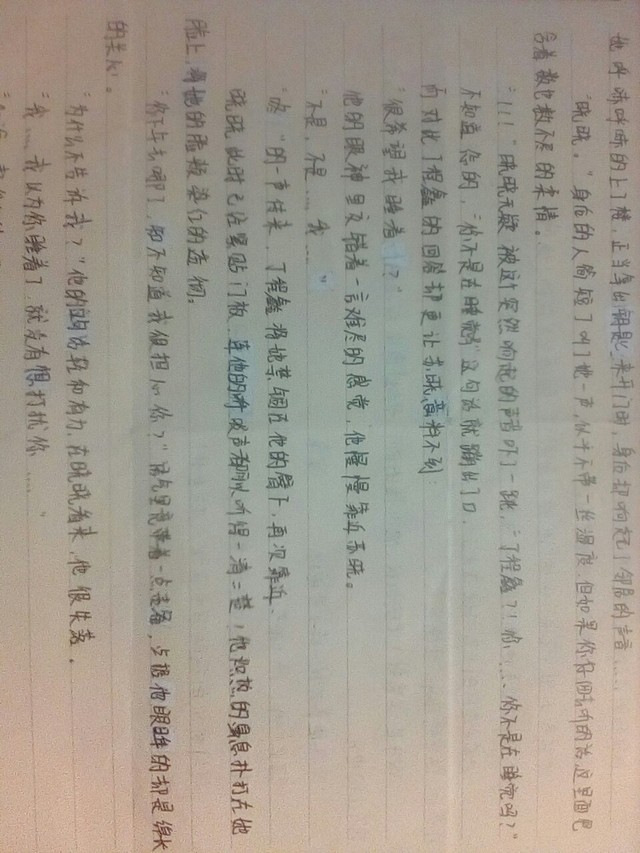 她呼哧呼哧的上了楼,正当拿出钥匙来开门时,身后却响起了邻居的声音……
"晓晓。"身后的人简短了叫了她一声,似乎不带一丝温度,但如果你仔细听的话,这里面包
含着数也数不尽的柔情。
"!!!"晓晓无疑被这突然响起的声音吓了一跳,"丁程鑫?!你……你不是在睡觉吗?"
不知道怎的,"你不是在睡觉"这句话就蹦出了口
可对此丁程鑫的回答却更让晓意料不到
"很希望我睡着了?"
他的眼神里交错着一言难尽的感觉,他慢慢靠近晓。
"不是,不是……我……"
"咚"的一声传来,丁程鑫将她禁锢在他的臂下,再次靠近
晓晓此时已经紧贴门板,连他的呼吸声都可以听得一清二楚,他炽热的气息扑打在她
脸上,将她的脸颊染红的透彻。
"你下午去哪了,却不知道我很担心你?"语气里竟带着一点,占据他眼眸的却是绵长
的关心。
"为什么不告诉我?"他的话轻和有力,在晓晓看来,他很失落。
"我……我以为你睡着了,就没有想打扰你……"